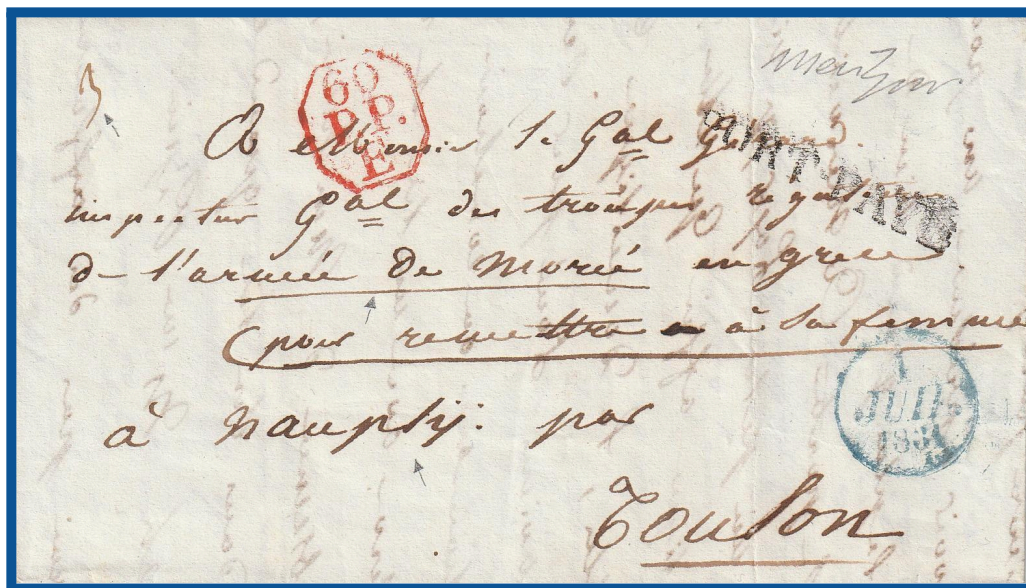 60
P.P.
E
PORT-PAYÉ
A Monsieur le Gal
inspecteur Gal des troupes
de l'armée de Morée en grece
(pour remettre a à sa femme
à Nauplij: par
JUIL
1831
Toulon